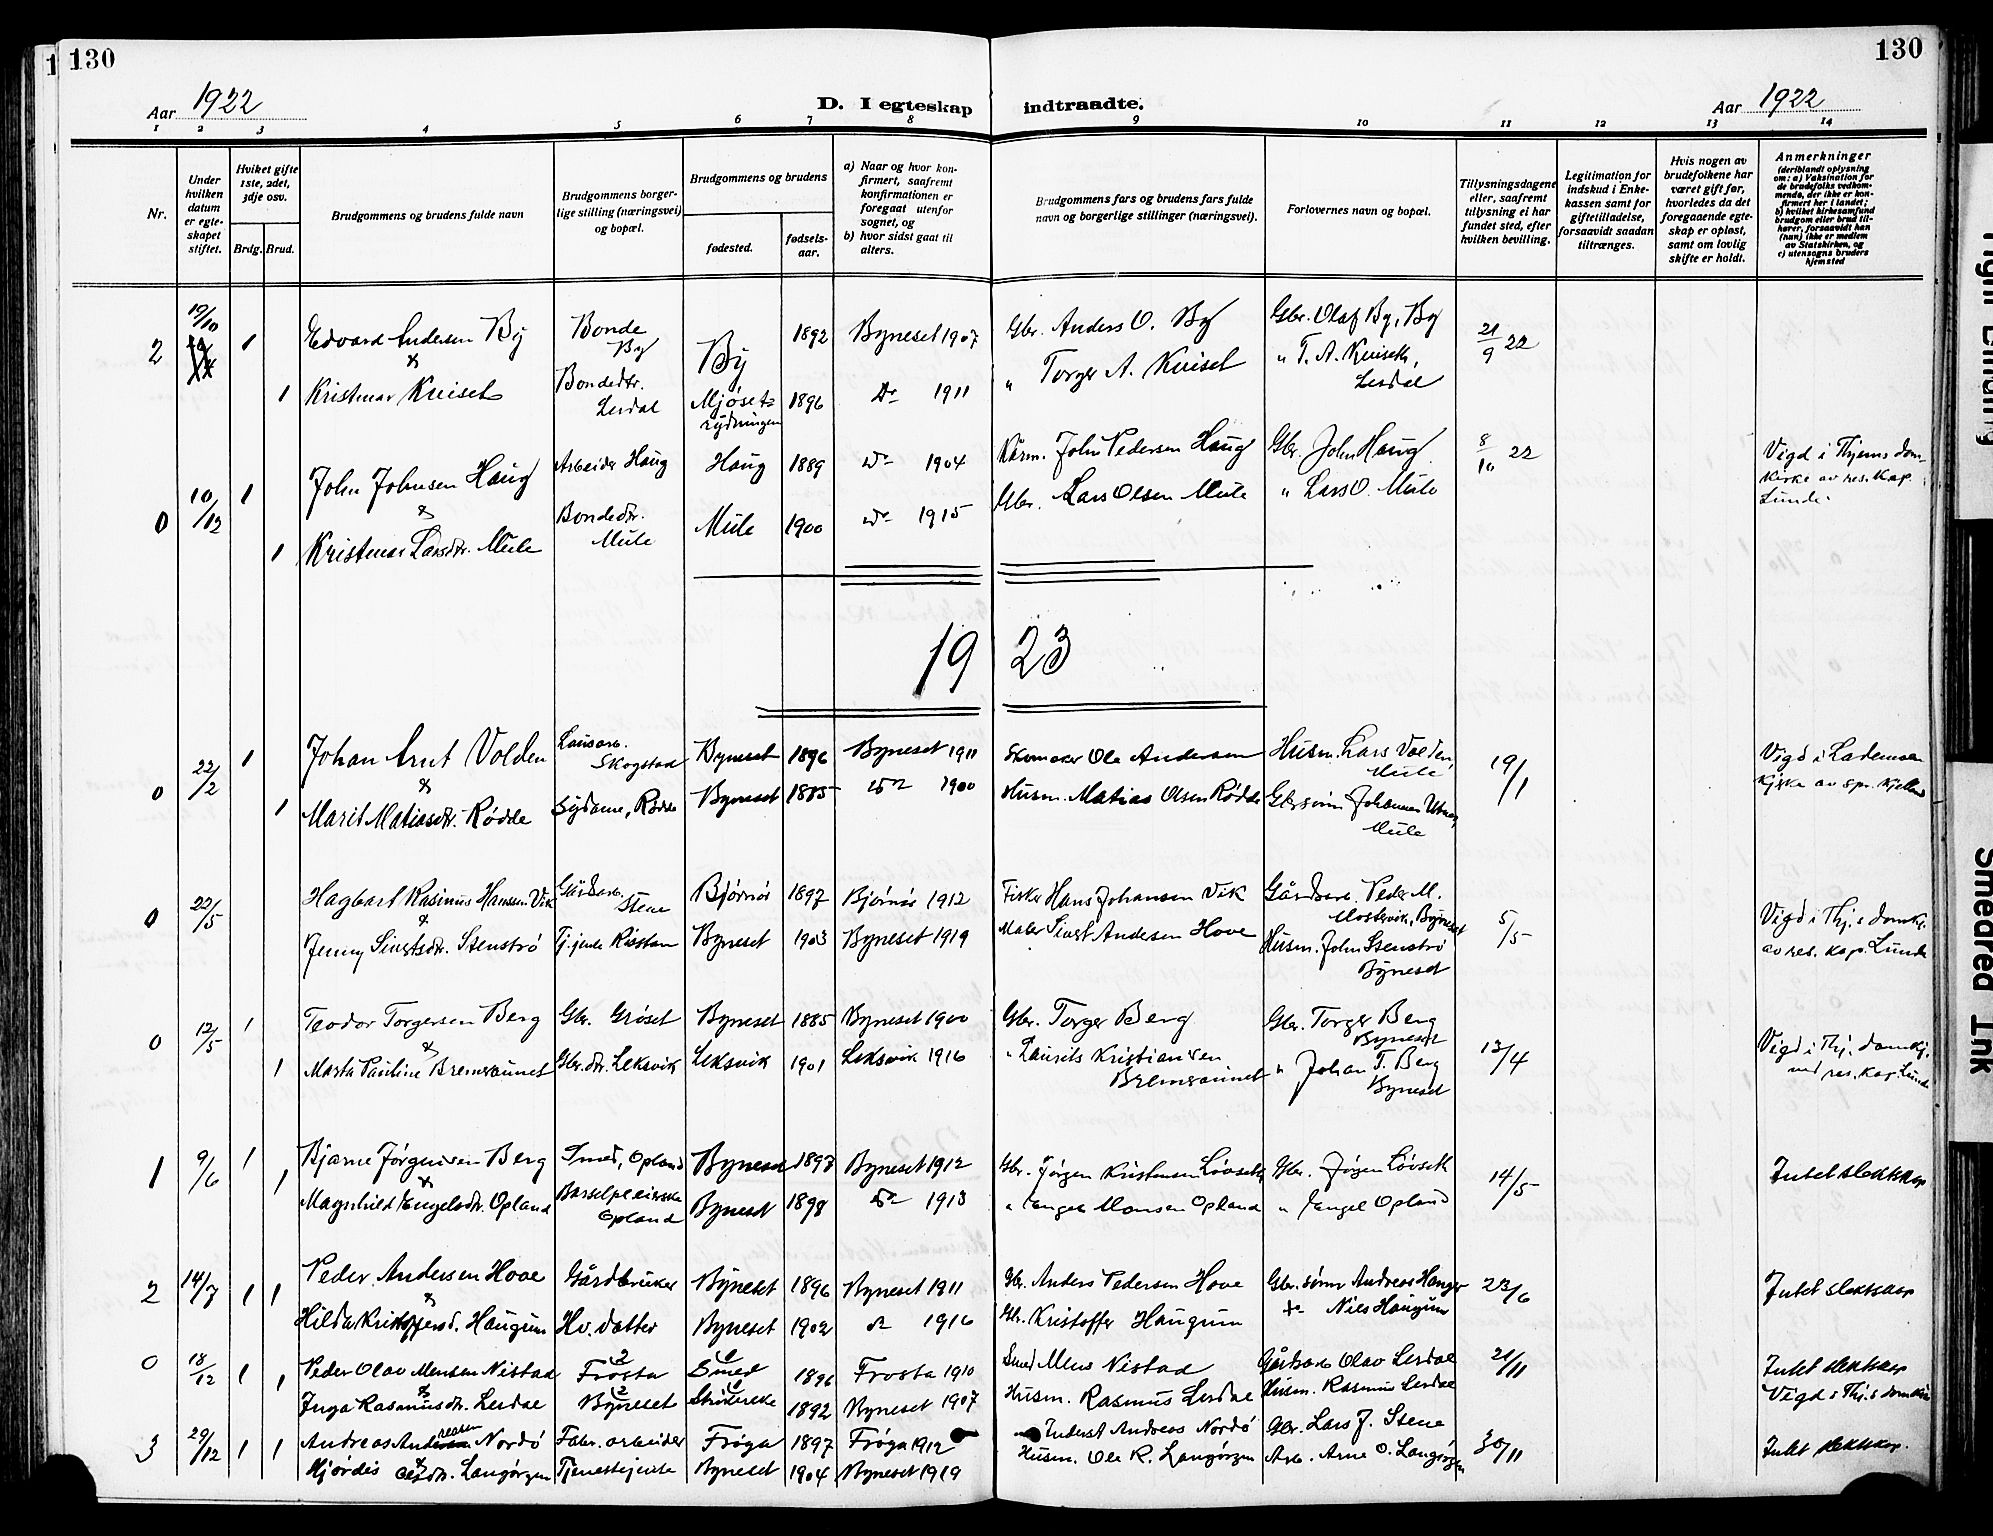 130
130
Aar 1922
D. I egteskap indtraadte.
Aar 1922
1 2 3 4 5 6 7 8 9 10 11 12 13 14
Nr.
Under hvilken datum er egteskapet stiftet.
Hvilket gifte 1ste, 2det, 3dje osv.
Brdg. Brud.
Brudgommens og brudens fulde navn
Brudgommens borgerlige stilling (næringsvei) og bopæl.
Brudgommens og brudens
fødested.
fødselsaar.
a) Naar og hvor konfirmert, saafremt konfirmationen er foregaat utenfor sognet, og
b) hvor sidst gaat til alters.
Brudgommens fars og brudens fars fulde navn og borgerlige stillinger (næringsvei).
Forlovernes navn og bopæl.
Tillysningsdagene eller, saafremt tillysning ei har fundet sted, efter hvilken bevilling.
Legitimation for indskud i Enkekassen samt for giftetilladelse, forsaavidt saadan tiltrænges.
Hvis nogen av brudefolkene har været gift før, hvorledes da det foregaaende egteskap er opløst, samt om lovlig skifte er holdt.
Anmerkninger (deriblandt oplysning om: a) Vaksination for de brudefolks vedkommende, der ikke er konfirmert her i landet; b) hvilket kirkesamfund brudgom eller brud tilhører, forsaavidt han (hun) ikke er medlem av Statskirken, og c) utensogns bruders hjemsted
2 19/10 1 Edvard Andersen By Bonde By By 1892 Byneset 1907 Gbr. Anders O. By Gbr. Olaf By, By 21/9 22
&
1 Kristmar Kviset Bondedtr. Lerdal Mjøsetrydningen 1896 Do 1911 " Torger A. Kviset " T. A. Kviseth, Lerdal
0 10/12 1 John Johnsen Haug Arbeider Haug Haug 1889 Do 1904 Kårm. John Pedersen Haug Gbr. John Haug 8/10 22 Vigd i Thjems domkirke av res. kap. Lunde.
&
1 Kristmar Larsdtr. Mule Bondedtr. Mule Mule 1900 Do 1915 Gbr. Lars Olsen Mule " Lars O. Mule
1923
0 22/2 1 Johan Arnt Volden Lausarb. Skogstad Byneset 1896 Byneset 1911 Skomaker Ole Andersen Husm. Lars Volden, Mule 19/1 Vigd i Lademoen Kjrke av spr. Kjelland
&
1 Marit Matiasdtr. Rødde Sydame, Rødde Byneset 1885 Do 1900 Husm. Matias Olsen Rødde Gbrsønn Johannes Mule
0 22/5 Hagbart Rasinus Hanssen Vik Gårdarb. Stene Bjørnør 1897 Bjørnør 1912 Fisker Hans Johansen Vik Gårdarb. Peder M. Mostervik, Byneset 5/5 Vigd i Thj.s domkj. av res. kap. Lunde
&
Jenny Sivertsdtr. Stenstrø Tj.jente Risstan Byneset 1903 Byneset 1919 Maler Sivert Andersen Hove Husm. John Stenstrø Byneset
0 12/5 1 Teodor Torgersen Berg Gbr. Grøset Byneset 1885 Byneset 1900 Gbr. Torger Berg Gbr. Torger Berg Byneset 13/4 Vigd i Thj. domkj. ved res. kap. Lunde
&
1 Marta Pauline Bremsaunet Gbr.dtr. Leksvik Leksvik 1901 Leksvik 1916 " Laurits Kristiansen Bremsaunet " Johan T. Berg Byneset
1 9/6 1 Bjarne Jørgensen Berg Smed, Opland Byneset 1897 Byneset 1912 Gbr. Jørgen Kristensen Løvseth Gbr. Jørgen Løvseth 14/5 Intet slektskap
&
1 Magnhild Engelsdtr. Opland Barselpleierske Opland Byneset 1898 Do 1913 " Engel Monsen Opland " Engel Opland
2 14/7 1 1 Peder Andersen Hove Gårdbruker Byneset 1896 Byneset 1911 Gbr. Anders Pedersen Hove Gbr. sønn Andreas Hanger 23/6 Intet slektskap
&
Hilda Kristoffersd. Haugum Hv. datter Byneset 1902 do 1916 Gbr. Kristoffer Haugum do Nils Haugum
0 18/12 1 1 Peder Olav Mensen Nistad 2 Frosta 1 Smed 1896 Frosta 1910 Smed Mens Nistad Gårdarb Olav Lerdal 21/11 Intet slektskap
&
Inga Rasmusdtr. Lerdal 2 Byneset 1 1892 Byneset 1907 Husm. Rasmus Lerdal Husm. Rasmus Lerdal Vigd i Thj.s domkirke
3 29/12 1 1 Andreas Andreasen Nordø Fabr. arbeider Frøya 1897 Frøya 1912 Inderst Andreas Nordø Gbr. Lars J. Stene 30/11 Intet slektskap.
&
Hjørdis Olsdtr. Langørgen Tjenestejente Byneset 1904 Byneset 1919 Husm. Ole R. Langørgen Arb. Arne O. Langørgen
Smeared Ink